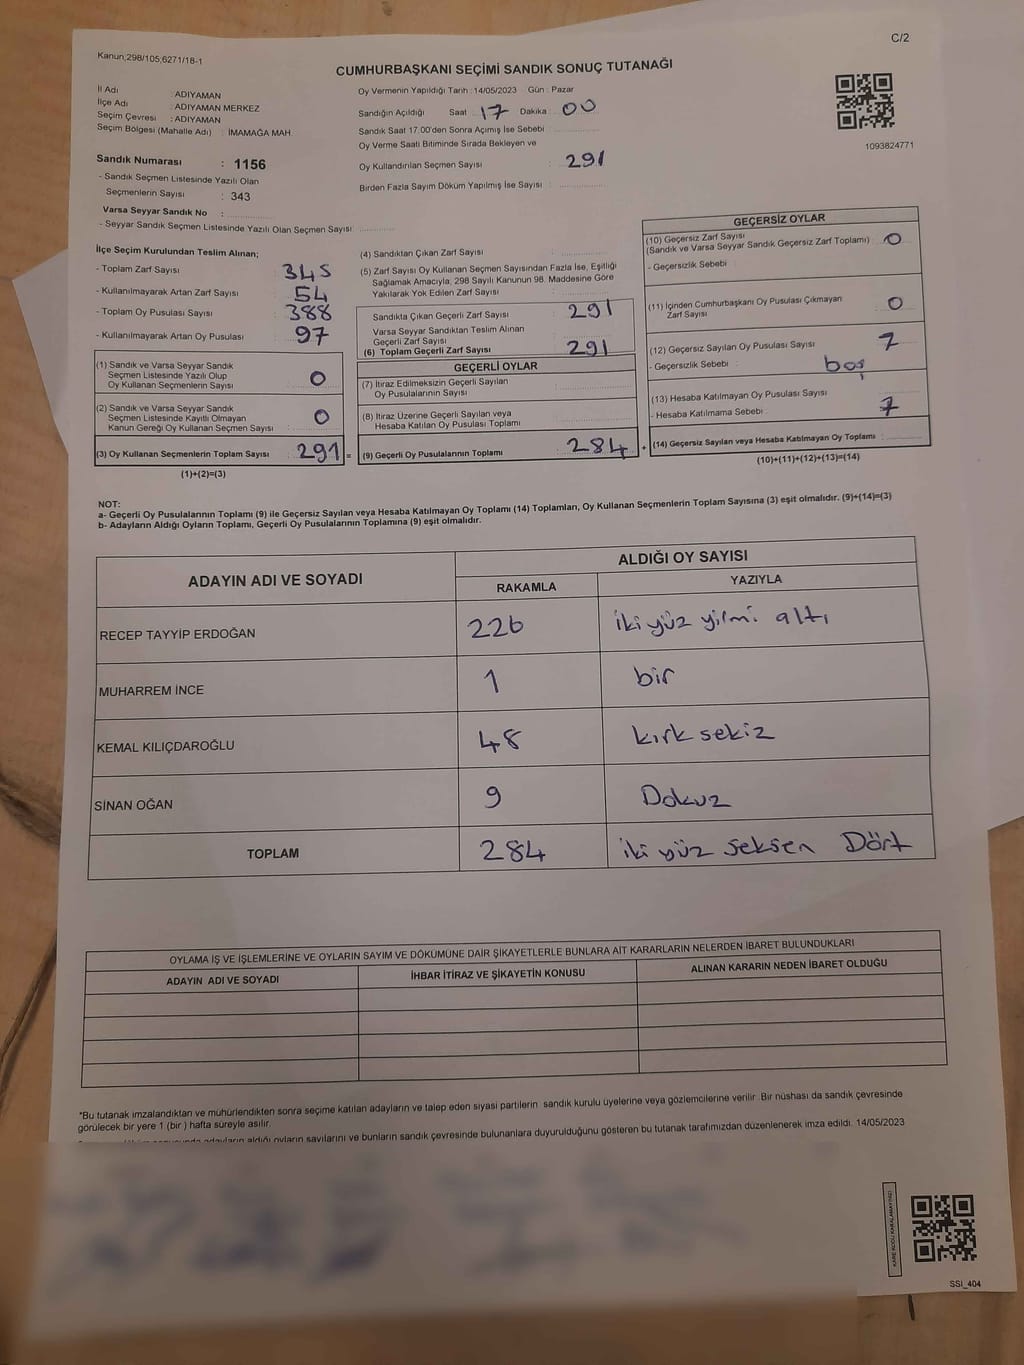 C/2
Kanun;298/105;6271/18-1
CUMHURBAŞKANI SEÇİMİ SANDIK SONUÇ TUTANAĞI
1093824771
İl Adı : ADIYAMAN
İlçe Adı : ADIYAMAN MERKEZ
Seçim Çevresi : ADIYAMAN
Seçim Bölgesi (Mahalle Adı) : İMAMAĞA MAH.
Sandık Numarası : 1156
- Sandık Seçmen Listesinde Yazılı Olan
Seçmenlerin Sayısı : 343
Varsa Seyyar Sandık No :
- Seyyar Sandık Seçmen Listesinde Yazılı Olan Seçmen Sayısı:
Oy Vermenin Yapıldığı Tarih : 14/05/2023 Gün : Pazar
Sandığın Açıldığı Saat 17 Dakika : 00
Sandık Saat 17.00'den Sonra Açımış İse Sebebi :
Oy Verme Saati Bitiminde Sırada Bekleyen ve
Oy Kullandırılan Seçmen Sayısı : 291
Birden Fazla Sayım Döküm Yapılmış İse Sayısı :
İlçe Seçim Kurulundan Teslim Alınan;
- Toplam Zarf Sayısı : 345
- Kullanılmayarak Artan Zarf Sayısı : 54
- Toplam Oy Pusulası Sayısı : 388
- Kullanılmayarak Artan Oy Pusulası : 97
(1) Sandık ve Varsa Seyyar Sandık
Seçmen Listesinde Yazılı Olup
Oy Kullanan Seçmenlerin Sayısı : 0
(2) Sandık ve Varsa Seyyar Sandık
Seçmen Listesinde Kayıtlı Olmayan
Kanun Gereği Oy Kullanan Seçmen Sayısı : 0
(3) Oy Kullanan Seçmenlerin Toplam Sayısı : 291 =
(1)+(2)=(3)
(4) Sandıktan Çıkan Zarf Sayısı :
(5) Zarf Sayısı Oy Kullanan Seçmen Sayısından Fazla İse, Eşitliği
Sağlamak Amacıyla; 298 Sayılı Kanunun 98. Maddesine Göre
Yakılarak Yok Edilen Zarf Sayısı :
Sandıkta Çıkan Geçerli Zarf Sayısı : 291
Varsa Seyyar Sandıktan Teslim Alınan
Geçerli Zarf Sayısı :
(6) Toplam Geçerli Zarf Sayısı : 291
GEÇERLİ OYLAR
(7) İtiraz Edilmeksizin Geçerli Sayılan
Oy Pusulalarının Sayısı :
(8) İtiraz Üzerine Geçerli Sayılan veya
Hesaba Katılan Oy Pusulası Toplamı :
(9) Geçerli Oy Pusulalarının Toplamı : 284 +
GEÇERSİZ OYLAR
(10) Geçersiz Zarf Sayısı
(Sandık ve Varsa Seyyar Sandık Geçersiz Zarf Toplamı) : 0
- Geçersizlik Sebebi :
(11) İçinden Cumhurbaşkanı Oy Pusulası Çıkmayan
Zarf Sayısı : 0
(12) Geçersiz Sayılan Oy Pusulası Sayısı : 7
- Geçersizlik Sebebi : boş
(13) Hesaba Katılmayan Oy Pusulası Sayısı :
- Hesaba Katılmama Sebebi : 7
(14) Geçersiz Sayılan veya Hesaba Katılmayan Oy Toplamı :
(10)+(11)+(12)+(13)=(14)
NOT:
a- Geçerli Oy Pusulalarının Toplamı (9) ile Geçersiz Sayılan veya Hesaba Katılmayan Oy Toplamı (14) Toplamları, Oy Kullanan Seçmenlerin Toplam Sayısına (3) eşit olmalıdır. (9)+(14)=(3)
b- Adayların Aldığı Oyların Toplamı, Geçerli Oy Pusulalarının Toplamına (9) eşit olmalıdır.
ADAYIN ADI VE SOYADI ALDIĞI OY SAYISI
RAKAMLA YAZIYLA
RECEP TAYYİP ERDOĞAN 226 iki yüz yirmi altı
MUHARREM İNCE 1 bir
KEMAL KILIÇDAROĞLU 48 kırk sekiz
SİNAN OĞAN 9 Dokuz
TOPLAM 284 iki yüz seksen Dört
OYLAMA İŞ VE İŞLEMLERİNE VE OYLARIN SAYIM VE DÖKÜMÜNE DAİR ŞİKAYETLERLE BUNLARA AİT KARARLARIN NELERDEN İBARET BULUNDUKLARI
ADAYIN ADI VE SOYADI İHBAR İTİRAZ VE ŞİKAYETİN KONUSU ALINAN KARARIN NEDEN İBARET OLDUĞU
*Bu tutanak imzalandıktan ve mühürlendikten sonra seçime katılan adayların ve talep eden siyasi partilerin sandık kurulu üyelerine veya gözlemcilerine verilir. Bir nüshası da sandık çevresinde
görülecek bir yere 1 (bir) hafta süreyle asılır.
adayların aldığı oyların sayılarını ve bunların sandık çevresinde bulunanlara duyurulduğunu gösteren bu tutanak tarafımızdan düzenlenerek imza edildi. 14/05/2023
KARE KODU KARALAMAYINIZ!
SSI_404